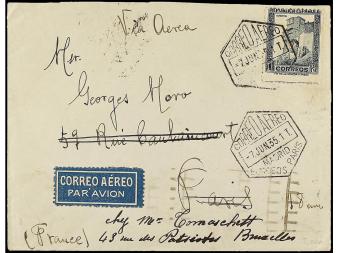 Via Aerea
REPUBLICA ESPAÑOLA
CORREOS
CORREO AEREO
-7.JUN.35.1 T.
Mr.
Georges Moro
59 Rue
CORREO AEREO
-7.JUN.35.1 T.
MADRID
PARIS
Paris
CORREO AÉREO
PAR AVION
(France)
chez Mr. Tomaschett
43 rue des Patriotes Bruxelles